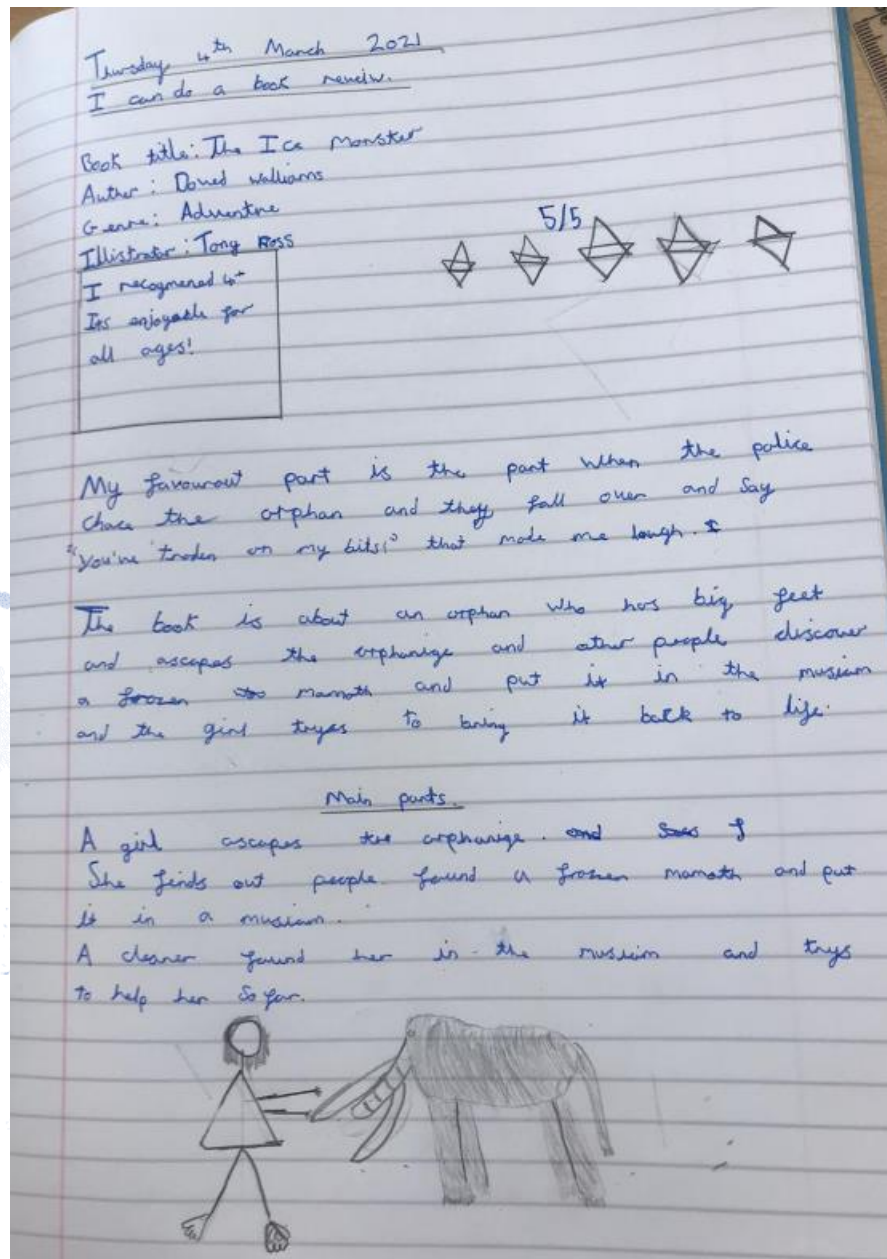 Thursday 4th March 2021
I can do a book reveiw.
Book title: The Ice Monster
Auther: Daved walliams
Genre: Adventre
Illistrator: Tony Ross
5/5
I recogmened 4+
Its enjoyable for
all ages!
My favourout part is the part when the police
chace the orphan and they fall over and say
"you've troden on my bits!" that made me laugh.
The book is about an orphan who has big feet
and ascapes the orphanige and other people discover
a frozen mamoth and put it in the musium
and the girl tryes to bring it back to life.
Main parts.
A girl ascapes the orphanige.
She finds out people found a frozen mamoth and put
it in a musium.
A cleaner found her in the musium and trys
to help her so far.